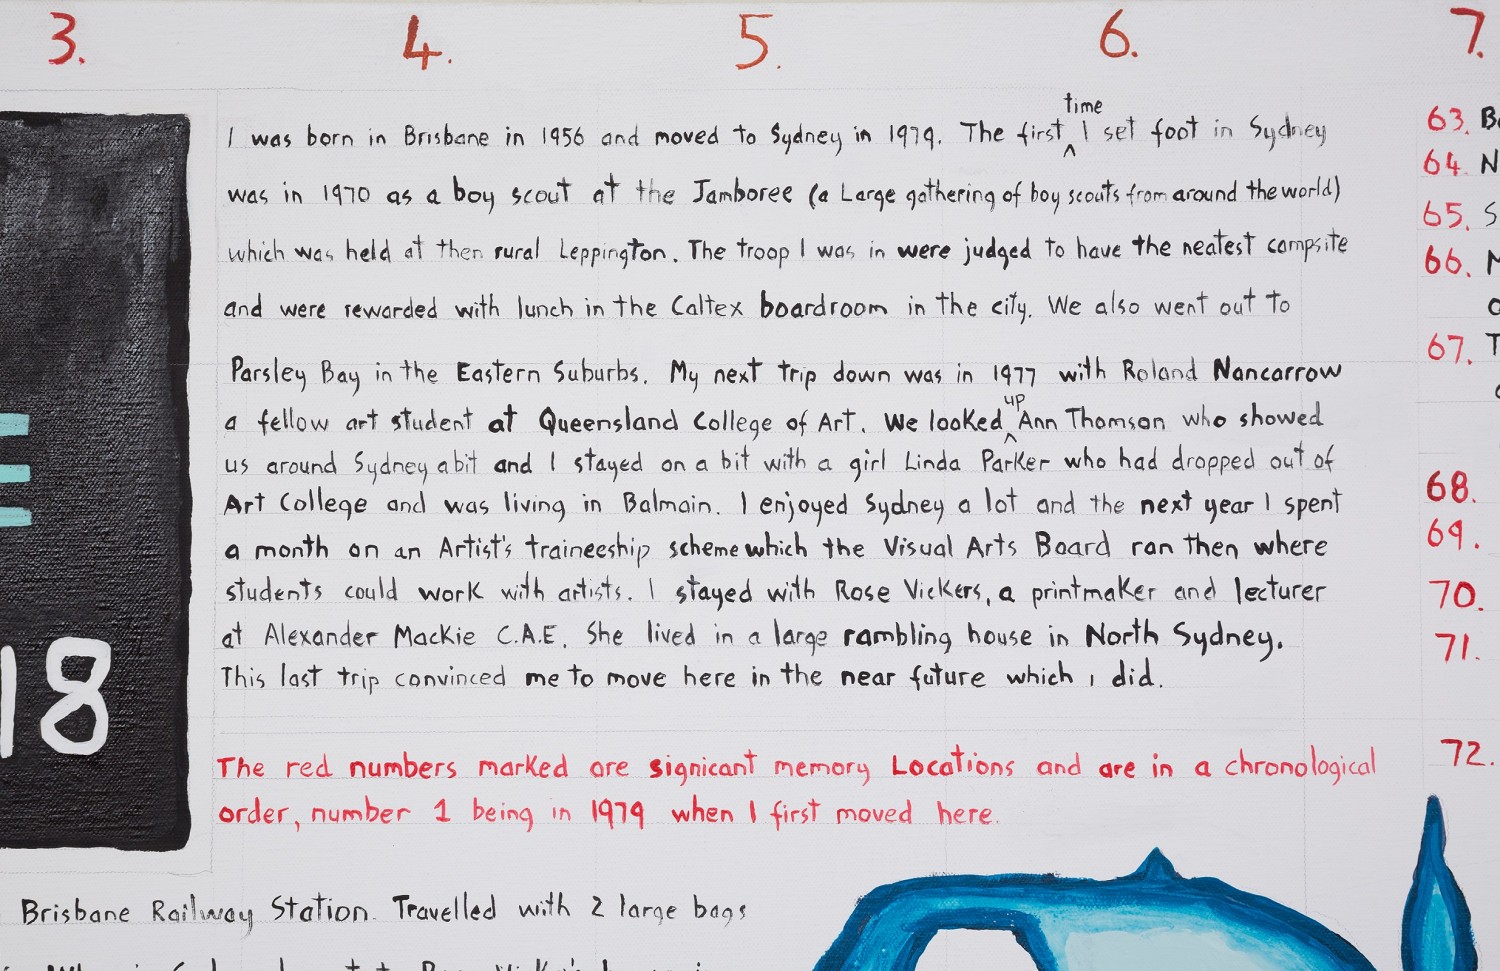 3. 4. 5. 6. 7.
time
I was born in Brisbane in 1956 and moved to Sydney in 1979. The first ^ I set foot in Sydney
was in 1970 as a boy scout at the Jamboree (a Large gathering of boy scouts from around the world)
which was held at then rural Leppington. The troop I was in were judged to have the neatest campsite
and were rewarded with lunch in the Caltex boardroom in the city. We also went out to
Parsley Bay in the Eastern Suburbs. My next trip down was in 1977 with Roland Nancarrow
up
a fellow art student at Queensland College of Art. We looked ^ Ann Thomson who showed
us around Sydney a bit and I stayed on a bit with a girl Linda Parker who had dropped out of
Art College and was living in Balmain. I enjoyed Sydney a lot and the next year I spent
a month on an Artist's traineeship scheme which the Visual Arts Board ran then where
students could work with artists. I stayed with Rose Vickers, a printmaker and lecturer
at Alexander Mackie C.A.E. She lived in a large rambling house in North Sydney.
This last trip convinced me to move here in the near future which I did.
The red numbers marked are signicant memory Locations and are in a chronological
order, number 1 being in 1979 when I first moved here.
Brisbane Railway Station. Travelled with 2 large bags
18
63.
64. N
65. S
66.
67. T
68.
69.
70.
71.
72.